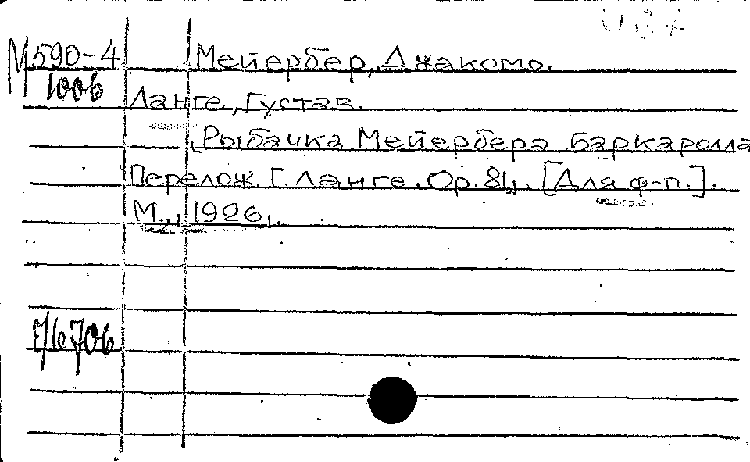 М590-4 Мейербер, Джакомо.
1006
Ланге, Густав.
Рыбачка Мейербера баркаролла
Перелож. Г. Ланге. Ор. 81,. [Для ф-п.].
М., 1926,.